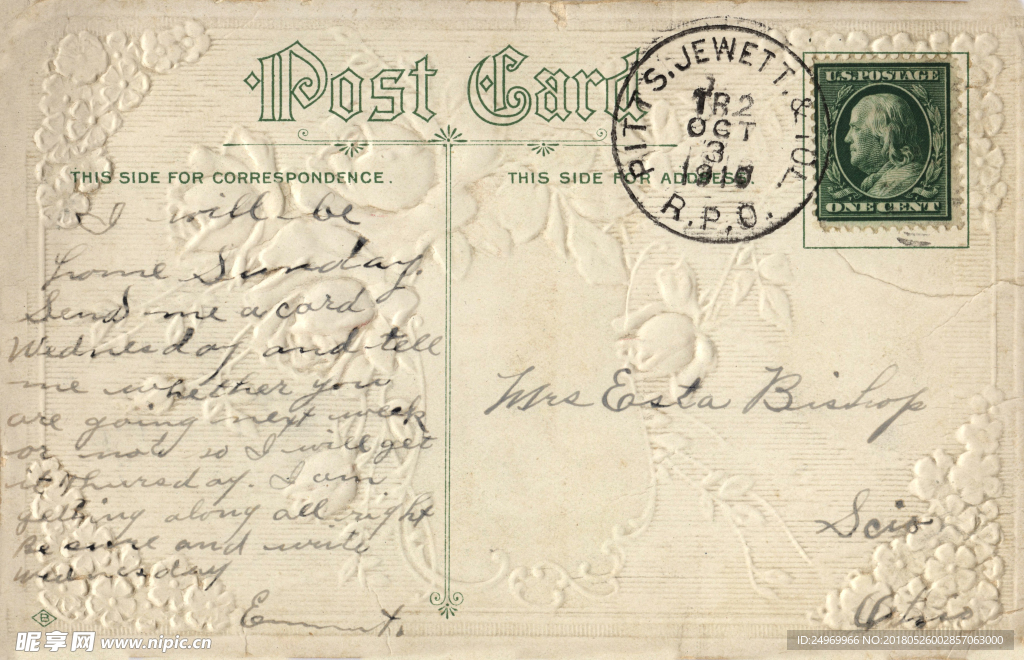 Post Card
THIS SIDE FOR CORRESPONDENCE.
THIS SIDE FOR ADDRESS.
PITTS. JEWETT. & TOL
TR2
OCT
3
1910
R.P.O.
U.S. POSTAGE
ONE CENT
I will be
home Sunday.
Send me a card
Wednesday and tell
me whether you
are going next week
or not so I will get
it Thursday. I am
getting along all right
be sure and write
Wednesday
Mrs Esta Bishop
Scio
Ohio
B
昵享网 www.nipic.cn
ID:24969966 NO:20180526002857063000